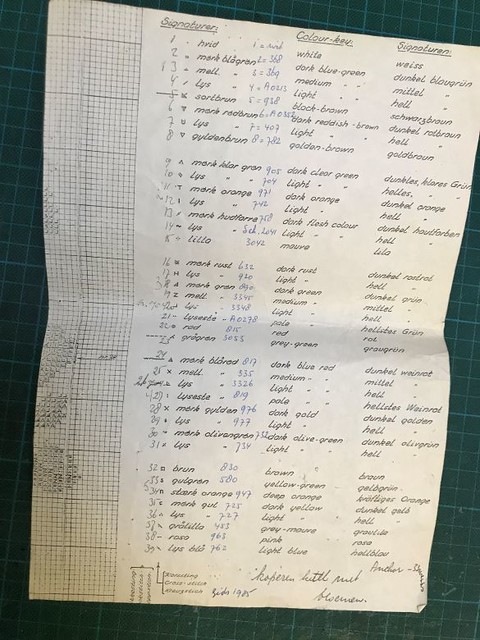 Signaturer: Colour-key: Signaturen:
1 hvid 1 = wit white weiss
2 mørk blågrøn 2 = 368 dark blue-green dunkel blaugrün
3 mell. " 3 = 369 medium " mittel "
4 lys " 4 = A0213 light " hell "
5 sortbrun 5 = 938 black-brown schwarzbraun
6 mørk rødbrun dark reddish-brown dunkel rotbraun
7 lys " 7 = 407 light " hell "
8 gyldenbrun 8 = 782 golden-brown goldbraun
9 mørk klar grøn 905 dark clear green dunkles, klares Grün
10 lys " " 704 light " " helles, " "
11 mørk orange 971 dark orange dunkel orange
12 lys " 742 light " hell "
13 mørk hudfarve 758 dark flesh colour dunkel hautfarben
14 lys " light " " hell "
15 lilla 3042 mauve lila
16 mørk rust 632 dark rust dunkel rostrot
17 lys " 920 light " hell "
18 mørk grøn 890 dark green dunkel grün
19 mell. " 3345 medium " mittel "
20 lys " 3348 light " hell "
21 lyseste " A0278 pale " hellstes Grün
22 rød 815 red rot
23 grågrøn 3053 grey-green graugrün
24 mørk blårød 817 dark blue red dunkel weinrot
25 mell. " 335 medium " " mittel "
lys " 3326 light " " hell "
27 lyseste " 819 pale " " hellstes Weinrot
28 mørk gylden 976 dark gold dunkel golden
29 lys " 977 light " hell "
30 mørk olivengrøn dark olive-green dunkel olivgrün
31 lys " 734 light " " hell "
32 brun 830 brown braun
33 gulgrøn 580 yellow-green gelbgrün
34 stærk orange 947 deep orange kräftiges Orange
35 mørk gul 725 dark yellow dunkel gelb
36 lys " 727 light " hell "
37 grålilla 453 grey-mauve graulila
38 rosa 963 pink rosa
39 lys blå 762 light blue hellblau
Korssting
Cross-stitch
Kreuzstich
1985
Anchor
bloemen.